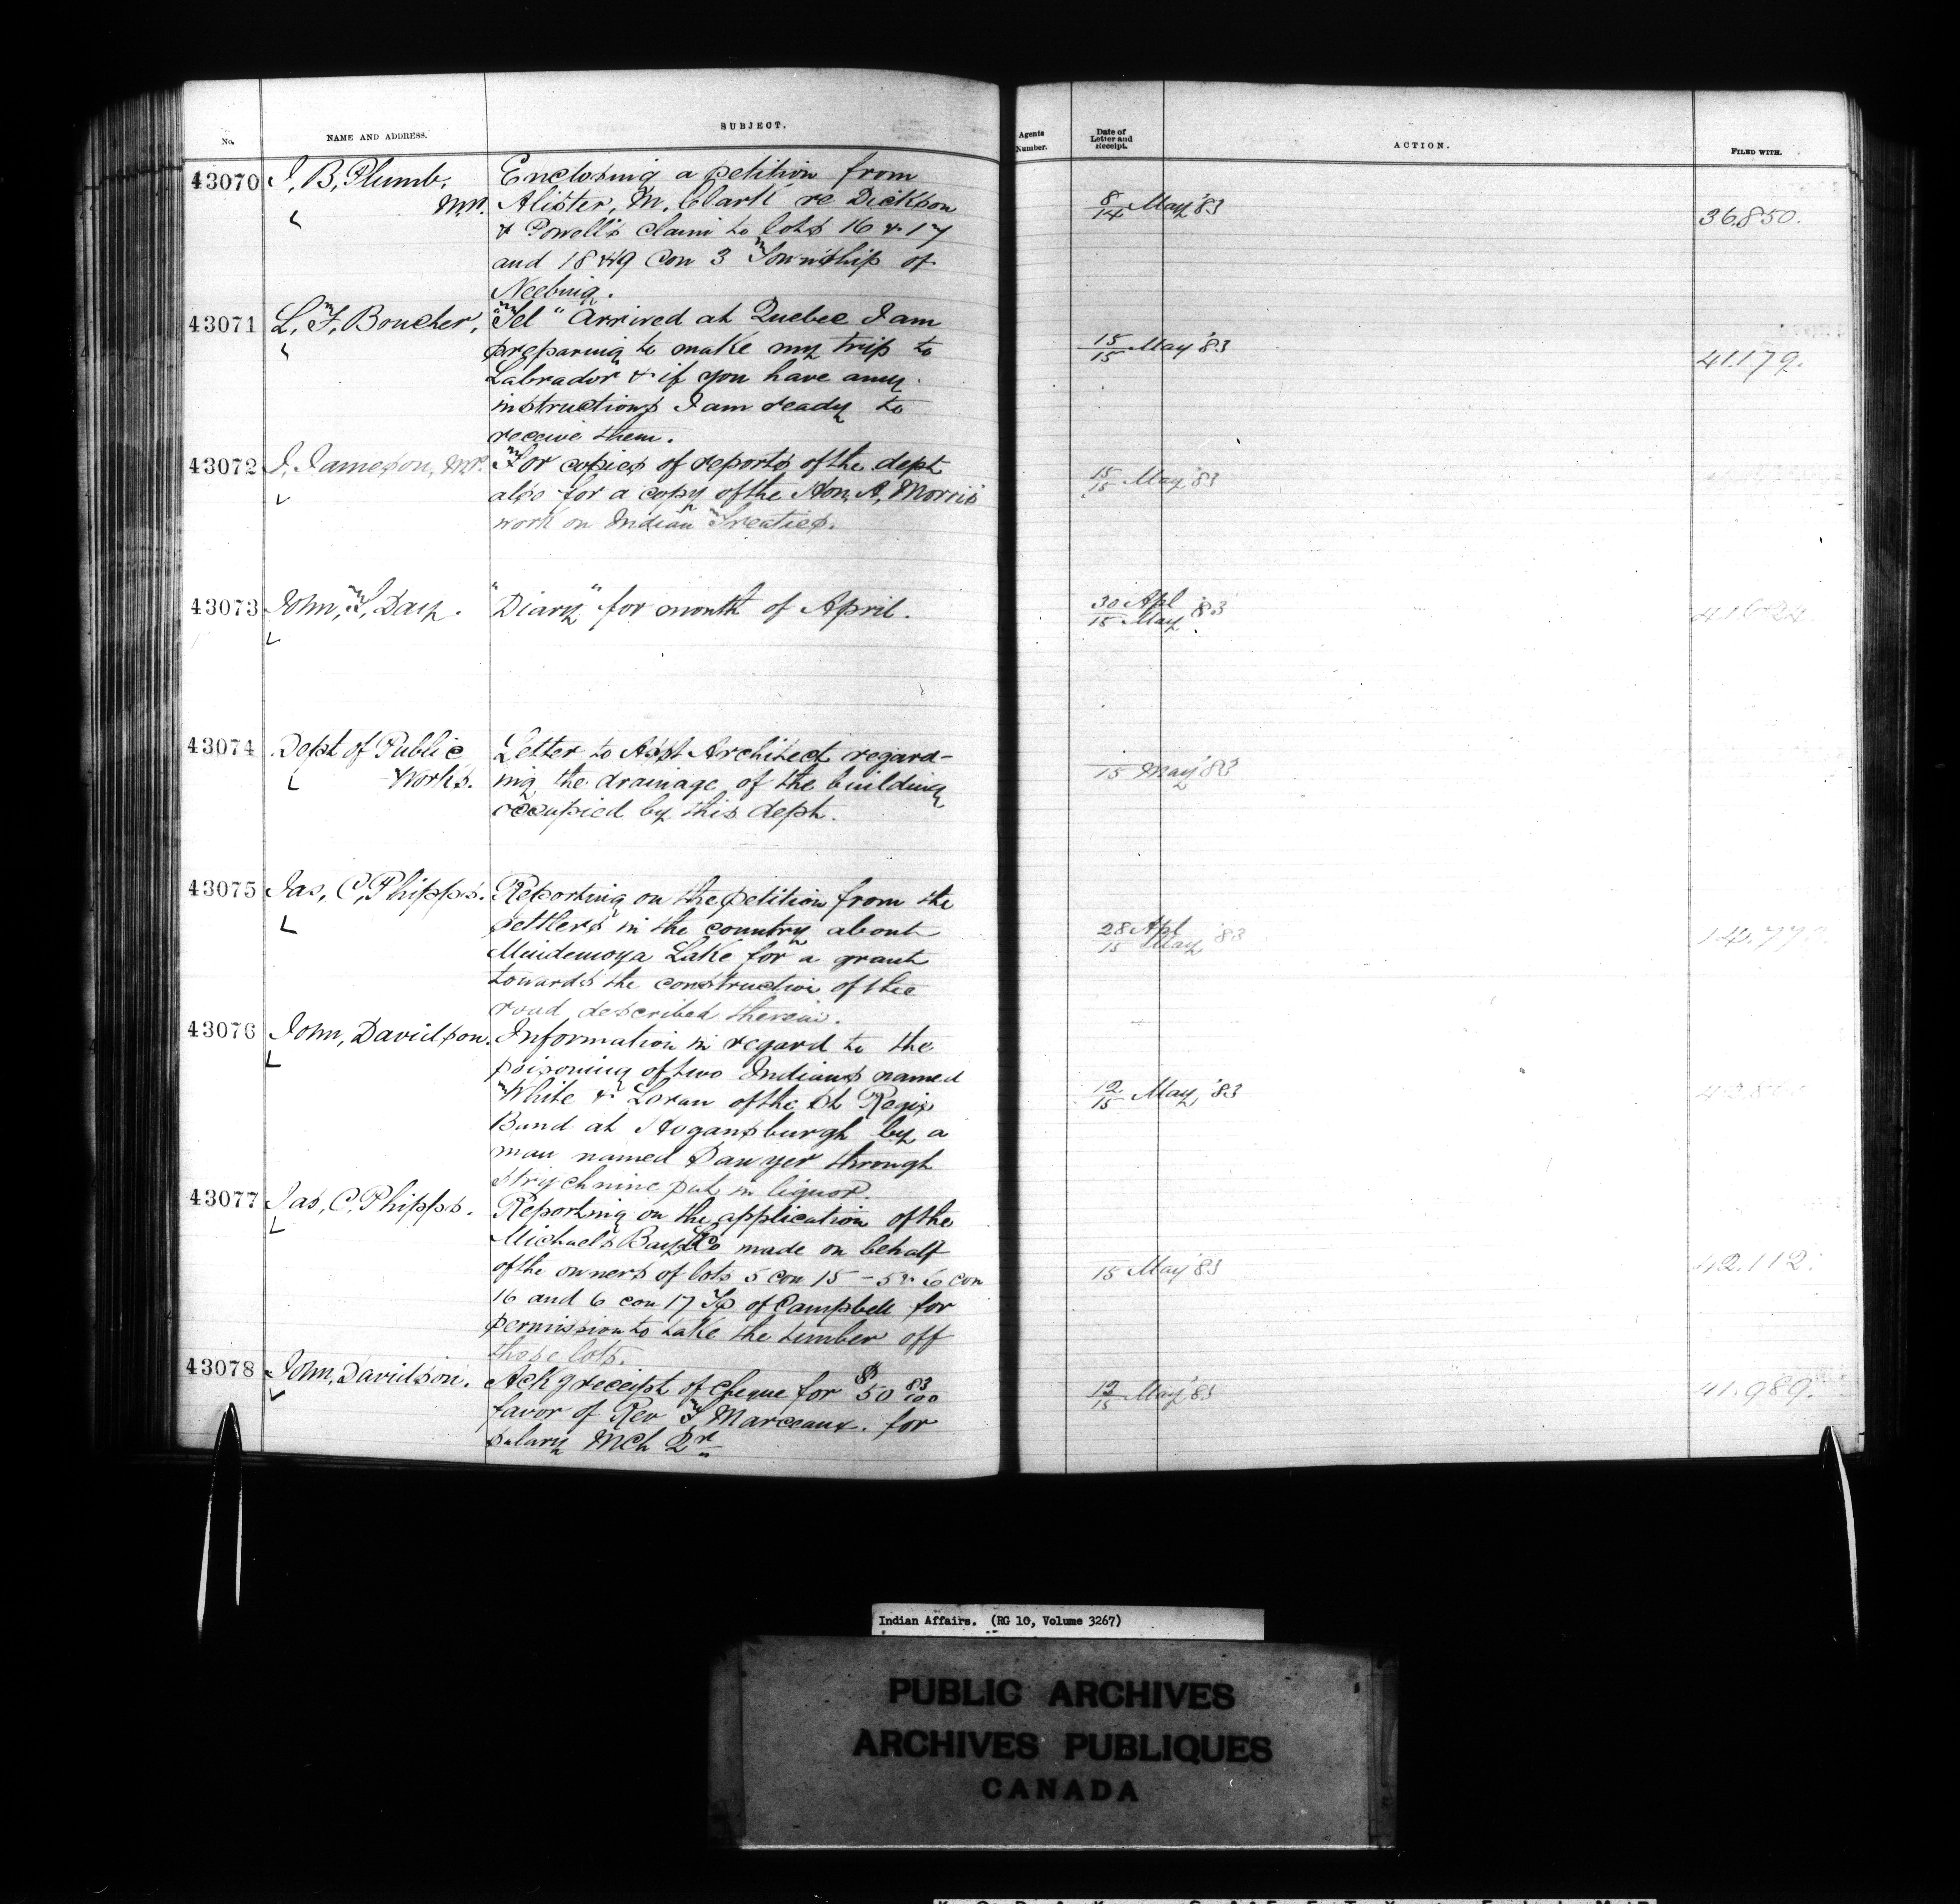 No.
NAME AND ADDRESS.
SUBJECT.
Agents Number.
Date of Letter and Receipt.
ACTION.
FILED WITH.
43070
J, B, Plumb,
M.P.
Enclosing a petition from
Alister, M, Clark re Dickson
& Powell's claim to lots 16 & 17
and 18 & 19 Con 3 Township of
Neebing.
8/14 May '83
36.850.
43071
L, F, Boucher,
"Tel" Arrived at Quebec I am
preparing to make my trip to
Labrador & if you have any
instructions I am ready to
receive them.
15/15 May '83
41.179.
43072
J, Jameson, M.P.
For copies of reports of the dept
also for a copy of the Hon, A, Morris
work on Indian Treaties.
15/15 May '83
43073
John, Day.
"Diary" for month of April.
30 Apl/15 May '83
43074
Dept of Public
Works.
Letter to Asst Architect regard-
ing the drainage of the building
occupied by this dept.
15 May '83
43075
Jas, C, Phipps.
Reporting on the petition from the
settlers in the country about
Mindemoya Lake for a grant
towards the construction of the
road described therein.
28 Apl/15 May '83
43076
John, Davidson.
Information in regard to the
poisoning of two Indians named
White & Loran of the St Regis
Band at Hogansburgh by a
man named Sawyer through
strychnine put in liquor.
12/15 May, '83
43077
Jas, C, Phipps.
Reporting on the application of the
Michael's Bay Co made on behalf
of the owners of lots 5 con 15 - 5 & 6 con
16 and 6 con 17 Tp of Campbell for
permission to take the timber off
those lots.
15 May '83
42.112.
43078
John, Davidson.
Ackg receipt of cheque for $50 83/100
favor of Rev Marceaux. for
salary Mch Qr
12/15 May '83
41.989.
Indian Affairs. (RG 10, Volume 3267)
PUBLIC ARCHIVES
ARCHIVES PUBLIQUES
CANADA